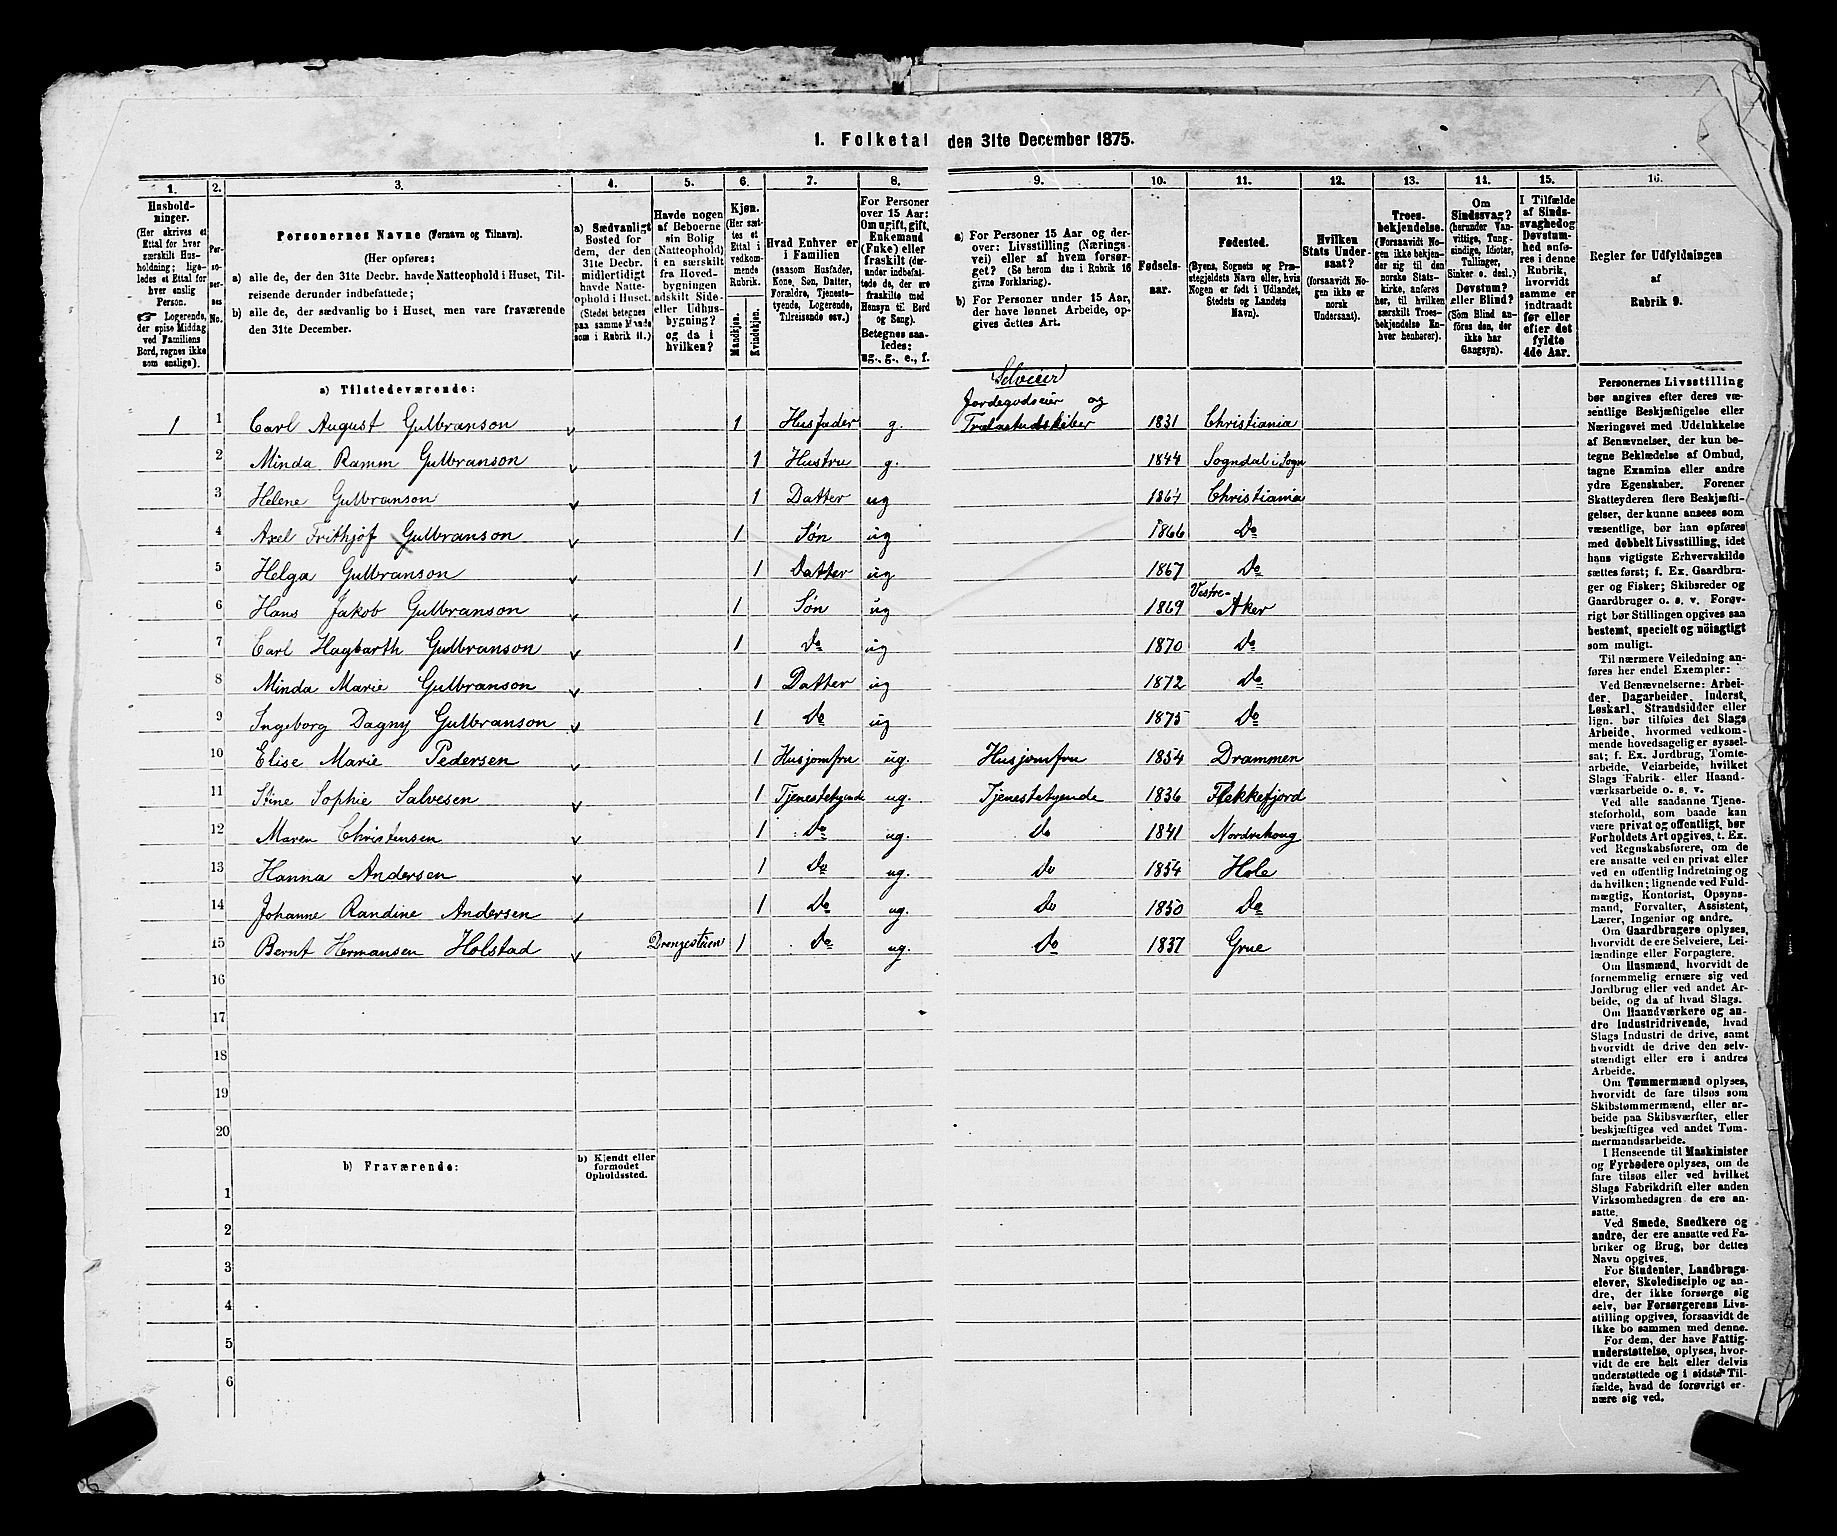 1. Folketal den 31te December 1875.
1. 2. 3. 4. 5. 6. 7. 8. 9. 10. 11. 12. 13. 14. 15. 16.
Hushold-
ninger.
(Her skrives et
Ettal for hver
særskilt Hus-
holdning; lige-
ledes et Ettal for
hver enslig
Person.
☞ Logerende,
der spise Middag
ved Familiens
Bord, regnes ikke
som enslige).
Per-
so-
ner-
nes
No.
Personernes Navne (Fornavn og Tilnavn).
(Her opføres:
a) alle de, der den 31te Decbr. havde Natteophold i Huset, Til-
reisende derunder indbefattede;
b) alle de, der sædvanlig bo i Huset, men vare fraværende
den 31te December.
a) Sædvanligt
Bosted for
dem, der den
31te Decbr.
midlertidigt
havde Natte-
ophold i Huset.
(Stedet betegnes
paa samme Maade
som i Rubrik 11.)
Havde nogen
af Beboerne
sin Bolig
(Natteophold)
i en særskilt
fra Hoved-
bygningen
adskilt Side-
eller Udhus-
bygning?
og da i
hvilken?
Kjøn.
(Her sæt-
tes et
Ettal i
vedkom-
mende
Rubrik.
Mandkjøn.
Kvindekjøn.
Hvad Enhver er
i Familien
(saasom Husfader,
Kone, Søn, Datter,
Forældre, Tjeneste-
tyende, Logerende,
Tilreisende osv.)
For Personer
over 15 Aar:
Om ugift, gift,
Enkemand
(Enke) eller
fraskilt (der-
under indbefat-
tede de, der ere
fraskilte med
Hensyn til Bord
og Seng).
Betegnes saa-
ledes:
ug., g., e., f.
a) For Personer 15 Aar og der-
over: Livsstilling (Nærings-
vei) eller af hvem forsør-
get? (Se herom den i Rubrik 16
givne Forklaring).
b) For Personer under 15 Aar,
der have lønnet Arbeide, op-
gives dettes Art.
Fødsels-
aar.
Fødested.
(Byens, Sognets og Præ-
stegjeldets Navn eller, hvis
Nogen er født i Udlandet,
Stedets og Landets
Navn).
Hvilken
Stats Under-
saat?
(forsaavidt No-
gen ikke er
norsk
Undersaat).
Troes-
bekjendelse.
(Forsaavidt No-
gen ikke bekjen-
der sig til den
norske Stats-
kirke, anføres
her, til hvilken
særskilt Troes-
bekjendelse En-
hver henhører).
Om
Sindssvag?
(herunder Van-
vittige, Tung-
sindige, Idioter,
Tullinger,
Sinker o. desl.)
Døvstum?
eller Blind?
(Som Blind an-
føres den, der
ikke har
Gangsyn).
I Tilfælde
af Sinds-
svaghed og
Døvstum-
hed anfø-
res i denne
Rubrik,
hvorvidt
samme er
indtraadt
før eller
efter det
fyldte
4de Aar.
Regler for Udfyldningen
af
Rubrik 9.
a) Tilstedeværende:
Selveier
Jordegodseier og
1 1 Carl August Gulbranson 1 Husfader g. Trælasthandler 1831 Christiania
2 Minda Ramm Gulbranson 1 Hustru g. 1844 Sogndal i Sogn
3 Helene Gulbranson 1 Datter ug 1864 Christiania
4 Axel Frithjof Gulbranson 1 Søn ug 1866 Do
5 Helga Gulbranson 1 Datter ug 1867 Do
6 Hans Jakob Gulbranson 1 Søn ug 1869 Vestre-Aker
7 Carl Hagbarth Gulbranson 1 Do ug 1870 Do
8 Minda Marie Gulbranson 1 Datter ug 1872 Do
9 Ingeborg Dagny Gulbranson 1 Do ug 1875 Do
10 Elise Marie Pedersen 1 Husjomfru ug. Husjomfru 1854 Drammen
11 Stine Sophie Salvesen 1 Tjenestetyende ug. Tjenestetyende 1836 Flekkefjord
12 Maren Christensen 1 Do ug. Do 1841 Nordrehoug
13 Hanna Andersen 1 Do ug. Do 1854 Hole
14 Johanne Randine Andersen 1 Do ug. Do 1850 Do
15 Bernt Hermansen Holstad Drengestuen 1 Do ug. Do 1837 Grue
16
17
18
19
20
b) Fraværende:
b) Kjendt eller
formodet
Opholdssted.
1
2
3
4
5
6
Personernes Livsstilling
bør angives efter deres væ-
sentlige Beskjæftigelse eller
Næringsvei med Udelukkelse
af Benævnelser, der kun be-
tegne Beklædelse af Ombud,
tagne Examina eller andre
ydre Egenskaber. Forener
Skatteyderen flere Beskjæfti-
gelser, der kunne ansees som
væsentlige, bør han opføres
med dobbelt Livsstilling, idet
hans vigtigste Erhvervskilde
sættes først; f. Ex. Gaardbru-
ger og Fisker; Skibsreder og
Gaardbruger o. s. v. Forøv-
rigt bør Stillingen opgives saa
bestemt, specielt og nöiagtigt
som muligt.
Til nærmere Veiledning an-
føres her endel Exempler:
Ved Benævnelserne: Arbei-
der, Dagarbeider, Inderst,
Løskarl, Strandsidder eller
lign. bør tilføies det Slags
Arbeide, hvormed vedkom-
mende hovedsagelig er syssel-
sat; f. Ex. Jordbrug, Tomte-
arbeide, Veiarbeide, hvilket
Slags Fabrik- eller Haand-
værksarbeide o. s. v.
Ved alle saadanne Tjene-
steforhold, som baade kan
være privat og offentligt, bør
Forholdets Art opgives, t. Ex.
ved Regnskabsførere, om de
ere ansatte ved en privat eller
ved en offentlig Indretning og
da hvilken; lignende ved Fuld-
mægtig, Kontorist, Opsyns-
mand, Forvalter, Assistent,
Lærer, Ingeniør og andre.
Om Gaardbrugere oplyses,
hvorvidt de ere Selveiere, Lei-
lændinge eller Forpagtere.
Om Husmænd, hvorvidt de
fornemmelig ernære sig ved
Jordbrug eller ved andet Ar-
beide, og da af hvad Slags.
Om Haandværkere og an-
dre Industridrivende, hvad
Slags Industri de drive, samt
hvorvidt de drive den selv-
stændigt eller ere i andres
Arbeide.
Om Tømmermænd oplyses,
hvorvidt de fare tilsøs som
Skibstømmermænd, eller ar-
beide paa Skibsværfter, eller
beskjæftiges ved andet Tøm-
mermandsarbeide.
I Henseende til Maskinister
og Fyrbødere oplyses, om de
fare tilsøs eller ved hvilket
Slags Fabrikdrift eller anden
Virksomhedsgren de ere an-
satte.
Ved Smede, Snedkere og
andre, der ere ansatte ved Fa-
briker og Brug, bør dettes
Navn opgives.
For Studenter, Landbrugs-
elever, Skoledisciple og an-
dre, der ikke forsørge sig
selv, bør Forsørgerens Livs-
stilling opgives, forsaavidt de
ikke bo sammen med denne.
For dem, der have Fattig-
understøttelse, oplyses, hvor-
vidt de ere helt eller delvis
understøttede og i sidste Til-
fælde, hvad de forøvrigt er-
nære sig ved.